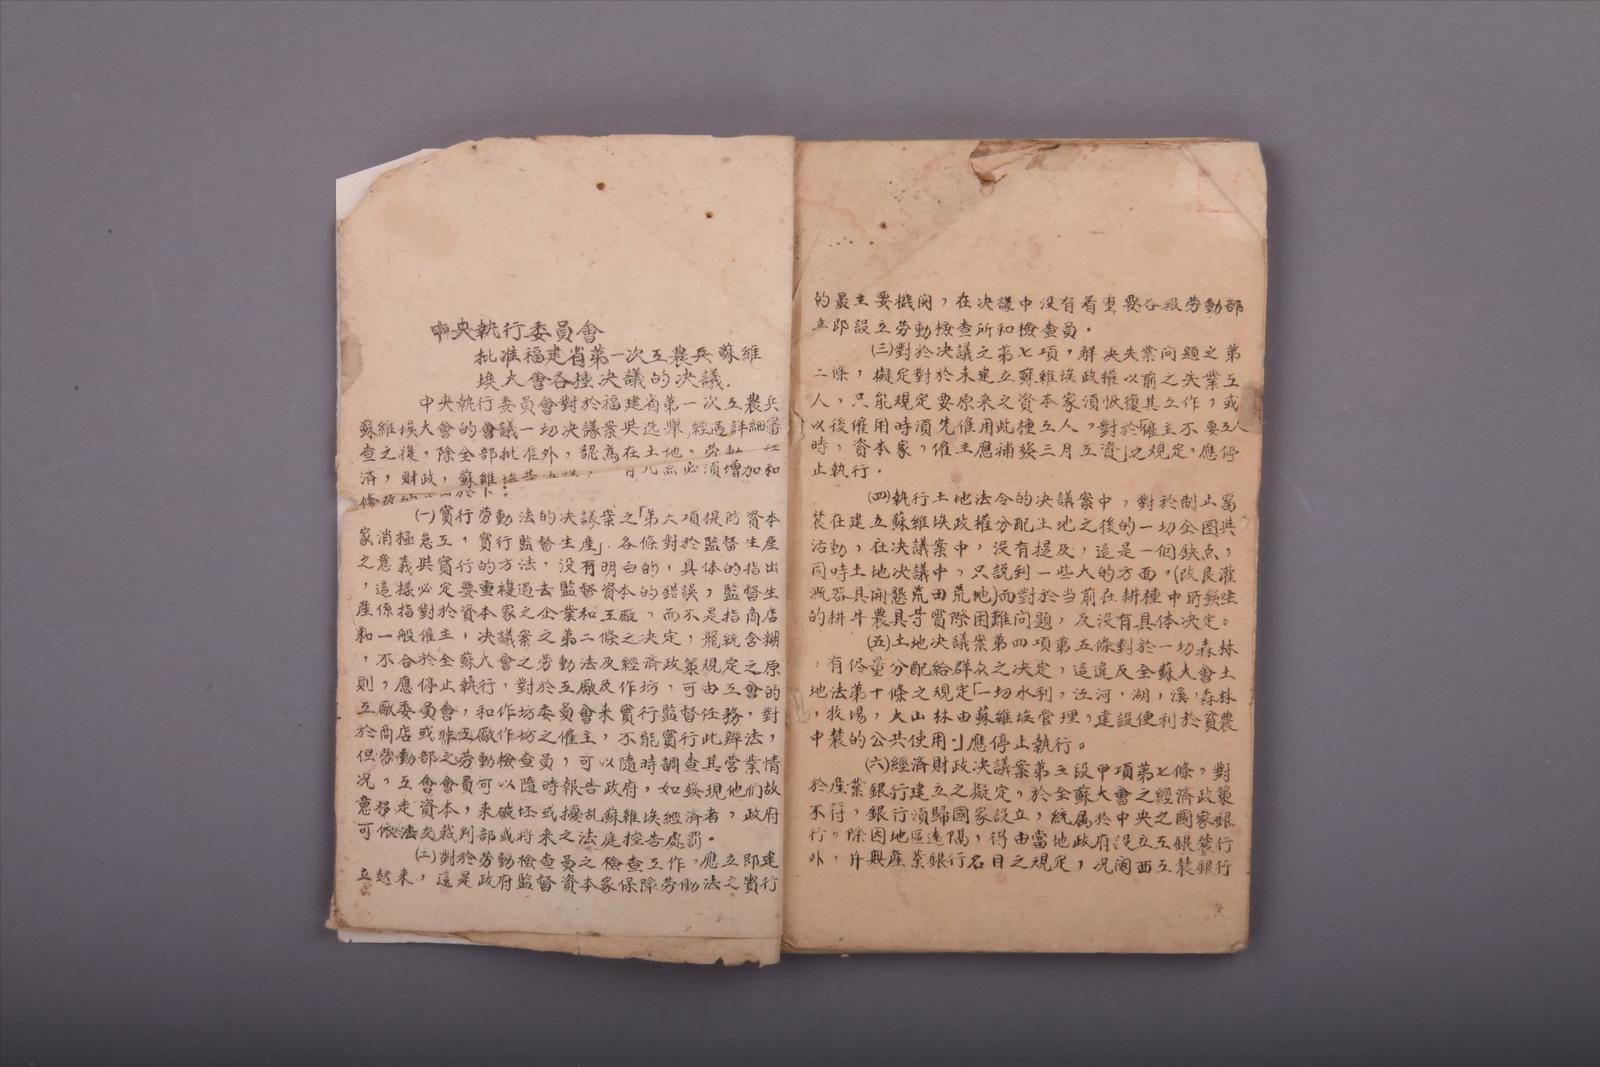 中央執行委員會
批准福建省第一次工農兵蘇維
埃大會各種決議的決議．
中央執行委員會對於福建省第一次工農兵
蘇維埃大會的會議一切決議案與选舉，經過詳細審
查之後，除全部批准外，認為在土地，勞動
濟，財政，蘇維埃 必須增加和
修改的
㈠實行劳動法的決議案之「第六項提防資本
家消極怠工，實行監督生產」．各條對於監督生產
之意義與實行的方法，沒有明白的，具体的指出
，這樣必定要重複過去監督資本的錯誤，監督生
產係指對於資本家之企業和工廠，而不是指商店
和一般僱主，決議案之第二條之決定，籠統含糊
，不合於全蘇大會之劳動法及經濟政策規定之原
則，應停止執行，對於工廠及作坊，可由工會的
工廠委員會，和作坊委員會来實行監督任務，對
於商店或非工廠作坊之僱主，不能實行此辦法，
但勞動部之劳動檢查員，可以隨時調查其营業情
况，工會會員可以隨時報告政府，如發現他们故
意移走資本，来破坯或擾乱蘇維埃經濟者，政府
可依法交裁判部或将来之法庭控告處罰。
㈡對於劳動檢查員之檢查工作，應立即建
立起来，這是政府監督資本家保障劳動法之實行
的最主要機関，在決議中沒有着重要各級劳動部
立即設立劳動檢查所和檢查員．
㈢對於決議之第七項，解決失業问題之第
二條，擬定對於未建立蘇維埃政權以前之失業工
人，只能規定要原来之資本家須恢復其工作，或
以後僱用時須先僱用此種工人，對於「僱主不要工人
時，資本家，僱主應補發三月工資」之規定，應停
止執行．
㈣執行土地法令的決議案中，對於制止富
農在建立蘇維埃政權分配土地之後的一切企图與
活動，在決議案中，沒有提及，這是一個缺点，
同時土地決議中，只說到一些大的方面，(改良灌
溉器具開懇荒田荒地)而對於当前在耕種中所發生
的耕牛農具等實際困難问題，反没有具体決定。
㈤土地決議案第四項第五條對於一切森林
，有侭量分配給群众之決定，這違反全蘇大會土
地法第十條之規定「一切水利，江河，湖，溪，森林
，牧場，大山林由蘇維埃管理，建設便利於貧農
中農的公共使用．」應停止執行。
㈥經濟財政決議案第三段甲項第七條，對
於產業銀行建立之擬定，於全蘇大會之經濟政策
不符，銀行須歸國家設立，統属於中央之國家銀
行，除因地區遠隔，得由當地政府設立工農銀行
外，并無產業銀行名目之規定，况閩西工農銀行